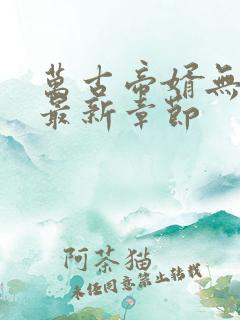 萬古帝婿無
最新章節
阿茶猫
未经同意禁止转载